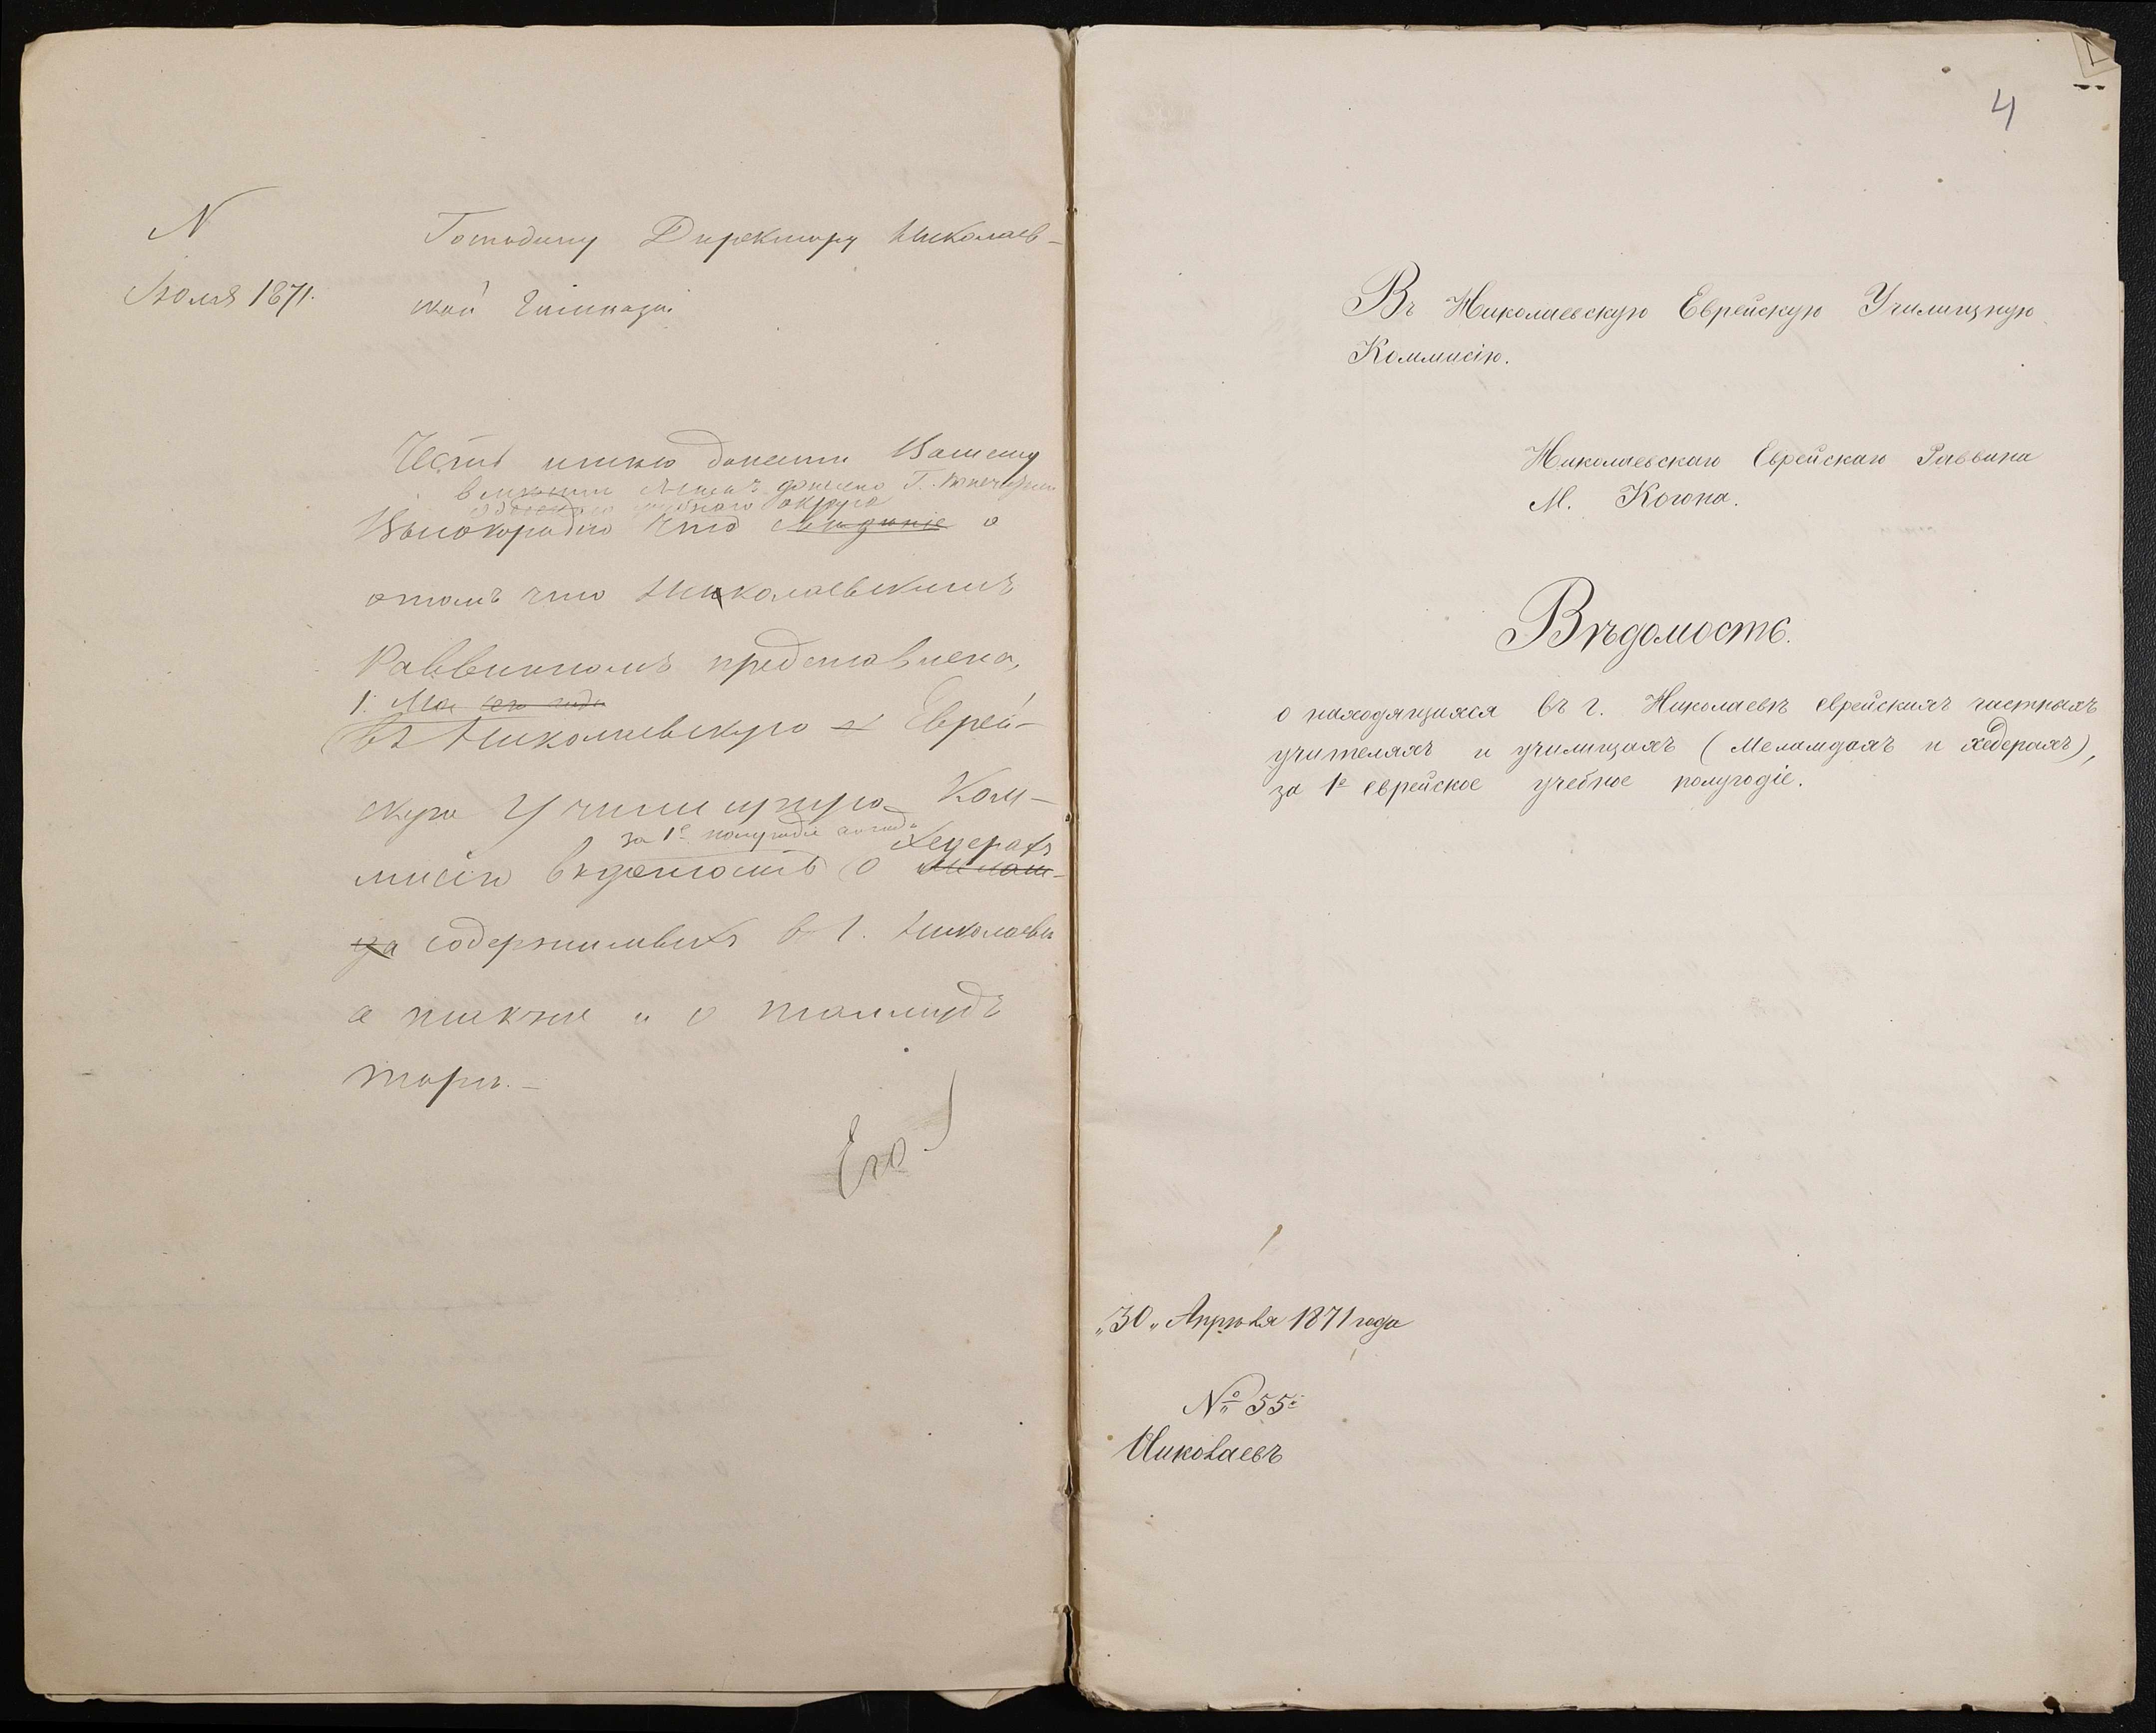 N
Іюля 1871.
Господину Директору Николаев-
ской Гимназіи
Честь имею донести Вашему
Высокородію что о
о томъ что Николаевскимъ
Раввиномъ представлена,
1. Мая сего года
въ Николаевскую Еврей-
скую Училищную Ком-
за 1е полугодіе
Хедерахъ
мисію вѣдомость о
содержимыхъ в г. Николаевѣ
а также и о талмудъ
торѣ.
4
Въ Николаевскую Еврейскую Училищную
Коммисію.
Николаевскаго Еврейскаго Раввина
М. Когона.
Вѣдомость.
о находящихся въ г. Николаевѣ еврейскихъ частныхъ
учителяхъ и училищахъ (Меламдахъ и хедерахъ),
за 1е еврейское учебное полугодіе.
„30„ Апрѣля 1871 года
№ 55.
Николаевъ